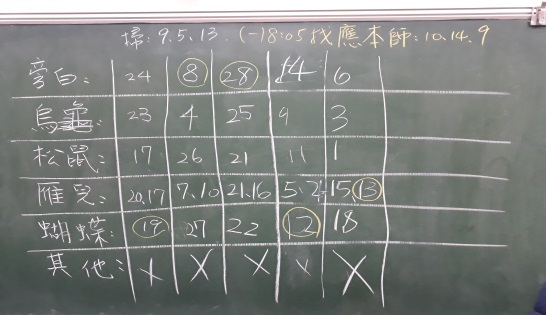 掃：9.5.13. (-18:05找應本師：10.14.9
旁白： 24 8 28 14 6
烏龜： 23 4 25 9 3
松鼠： 17 26 21 11 1
雁兒： 20.17 7.10 21.16 5.2 15.13
蝴蝶： 19 27 22 12 18
其他： X X X X X